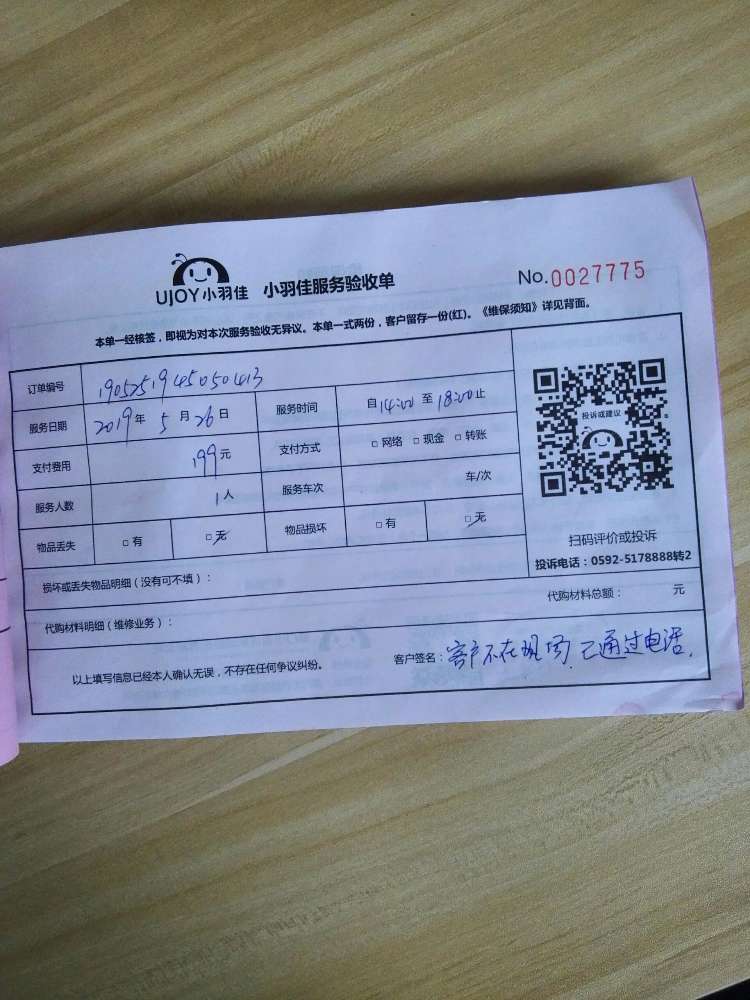 UJOY小羽佳 小羽佳服务验收单 No.0027775
本单一经核签，即视为对本次服务验收无异议。本单一式两份，客户留存一份(红)。《维保须知》详见背面。
订单编号 1905251945050413
服务日期 2019年 5月 26日 服务时间 自14:00 至 18:00止
支付费用 199元 支付方式 □ 网络 □ 现金 □ 转账
服务人数 1人 服务车次 车/次
物品丢失 □ 有 □ 无 物品损坏 □ 有 □ 无
投诉或建议
扫码评价或投诉
投诉电话：0592-5178888转2
损坏或丢失物品明细（没有可不填）：
代购材料明细（维修业务）： 代购材料总额： 元
以上填写信息已经本人确认无误，不存在任何争议纠纷。 客户签名：客户不在现场，已通过电话，